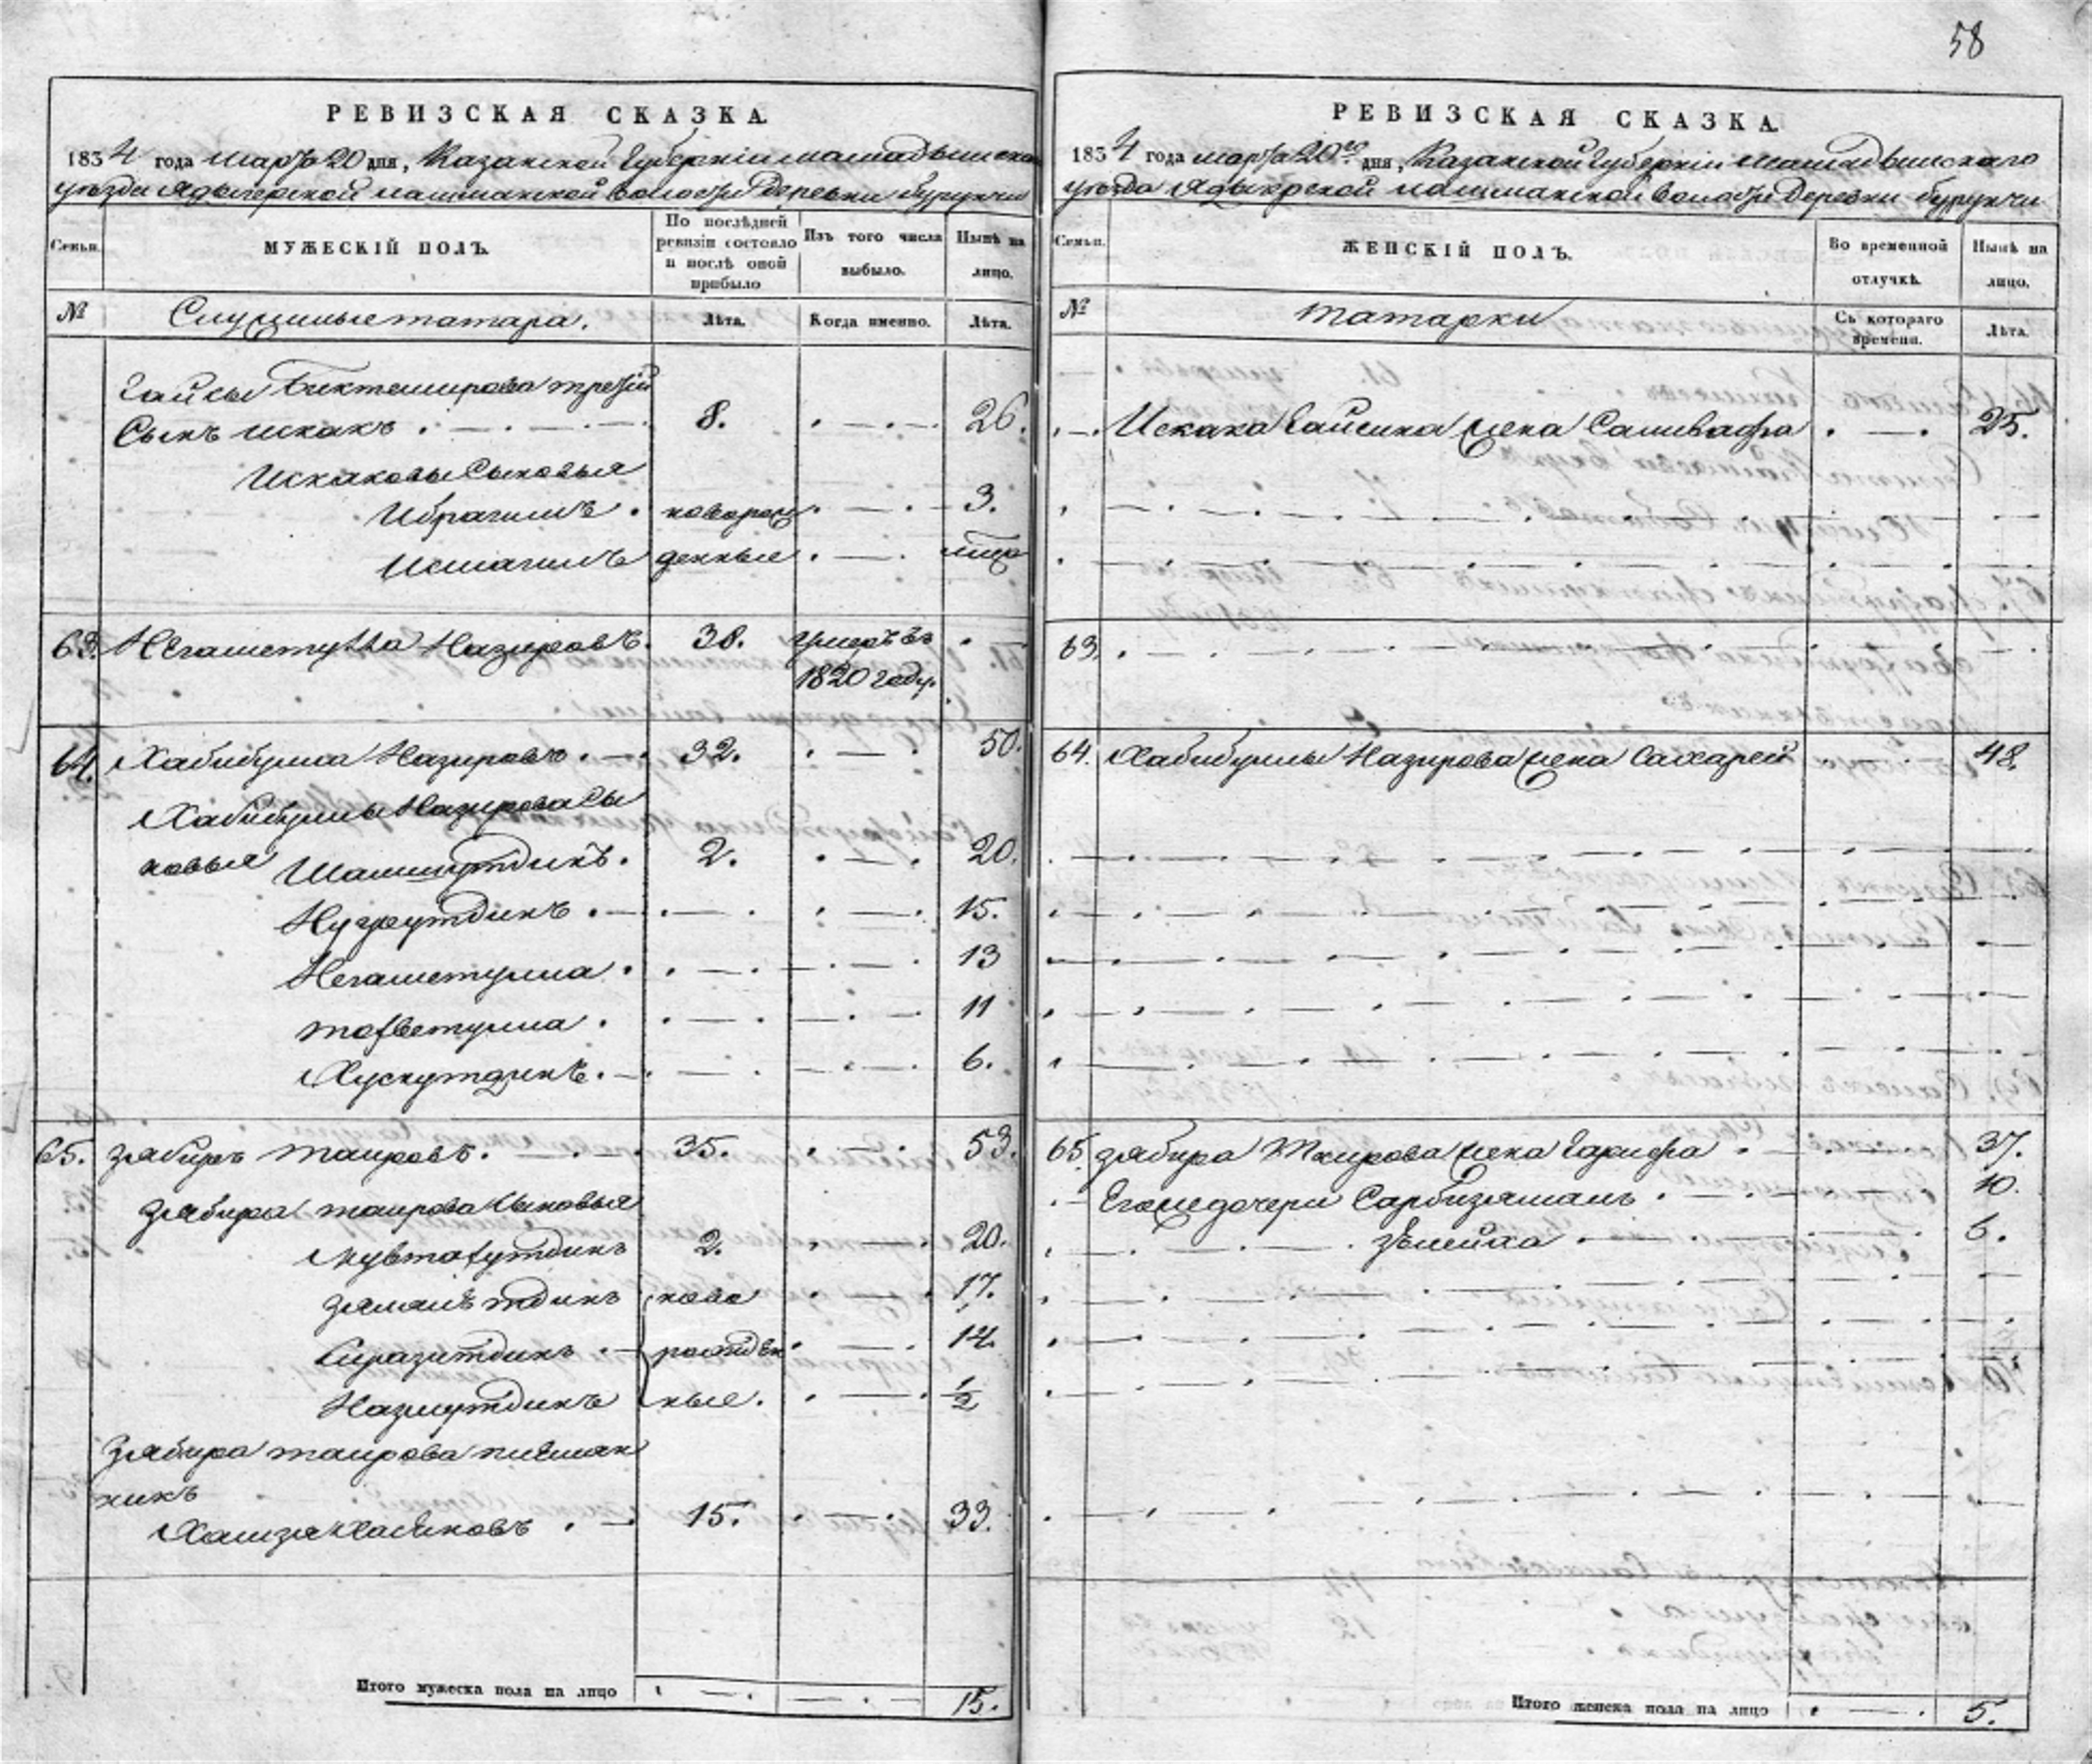 58
РЕВИЗСКАЯ СКАЗКА.
1834 года марта 20 дня, Казанской Губерніи мамадышска
уѣзда Ядыгерской лашманской волости деревни бурунчи
Семьи. МУЖЕСКІЙ ПОЛЪ. По послѣдней ревизіи состояло и послѣ оной прибыло Изъ того числа выбыло. Нынѣ на лицо.
№ Служилые татара. Лѣта. Когда именно. Лѣта.
Гайсы Биктемирова третій
Сынъ искакъ 8. 26.
Искаковы Сыновья
Ибрагимъ новорож 3.
Исмагилъ денные
63. Негаметулла Назировъ. 38. Умеръ въ
1820 году.
64. Хабибулла Назировъ 32. 50.
Хабибуллы Назирова Сы
новья Шамшутдинъ. 2. 20.
Нугреутдинъ 15.
Негаметулла 13
тофветулла 11
Хуснутдинъ 6.
65. Зябиръ таировъ. 35. 53.
Зябира таирова сыновья
Мувтафутдинъ 2. 20.
Замалъ тдинъ ново 17.
Сиразитдинъ рожден 14.
Назмутдинъ ные. 1/2
Зябира таирова племян
никъ
Хамзя Халиковъ 15. 33.
Итого мужеска пола на лицо 15.
РЕВИЗСКАЯ СКАЗКА.
1834 года марта 20го дня, Казанской Губерніи мамадышскаго
уѣзда Ядыгерской лашманской волости деревни бурунчи
Семьи. ЖЕНСКІЙ ПОЛЪ. Во временной отлучкѣ. Нынѣ на лицо.
№ татарки Съ котораго времени. Лѣта.
Искака Гайсина жена Салива 25.
63.
64. Хабибуллы Назирова жена Сахарей 48.
65. Зябира Таирова жена Гарифа 37.
Егоже дочери Сарбизямалъ 10.
Зѣлейха 6.
Итого женска пола на лицо 5.